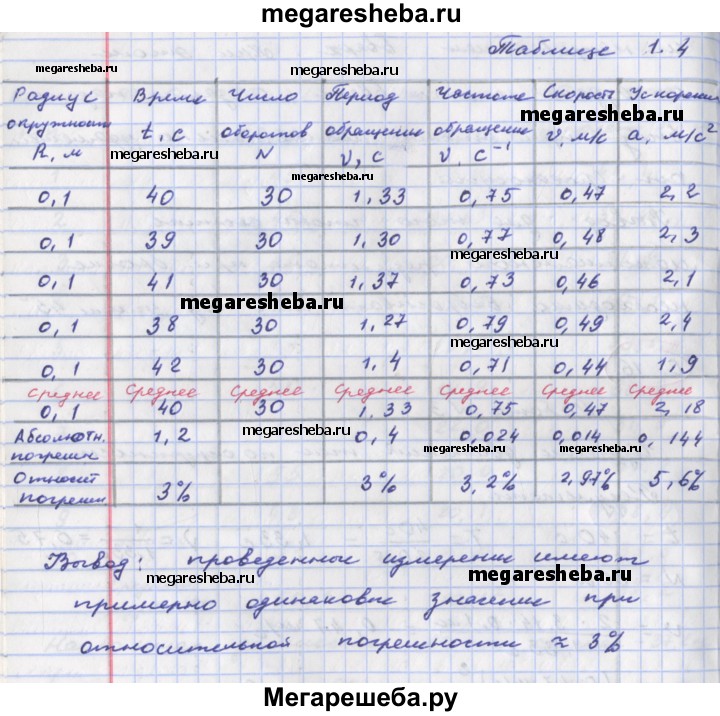 megaresheba.ru
Таблице 1.4
megaresheba.ru
megaresheba.ru
Радиус Время Число Период Частота Скорость Ускорение
megaresheba.ru
окружности t, с оборотов обращения обращения v, м/с a, м/с²
R, м N ν, с ν, с⁻¹
megaresheba.ru
megaresheba.ru
0,1 40 30 1,33 0,75 0,47 2,2
0,1 39 30 1,30 0,77 0,48 2,3
megaresheba.ru
0,1 41 30 1,37 0,73 0,46 2,1
megaresheba.ru
0,1 38 30 1,27 0,79 0,49 2,4
megaresheba.ru
0,1 42 30 1,4 0,71 0,44 1,9
Среднее Среднее Среднее Среднее Среднее Среднее Среднее
0,1 40 30 1,33 0,75 0,47 2,18
megaresheba.ru
Абсолютн. 1,2 0,4 0,024 0,014 0,144
погрешн.
megaresheba.ru
megaresheba.ru
Относит 3% 3% 3,2% 2,97% 5,6%
погрешн
Вывод: проведенные измерении имеют
megaresheba.ru
megaresheba.ru
примерно одинаковые значении при
относительной погрешности ≈ 3%
Мегарешеба.ру